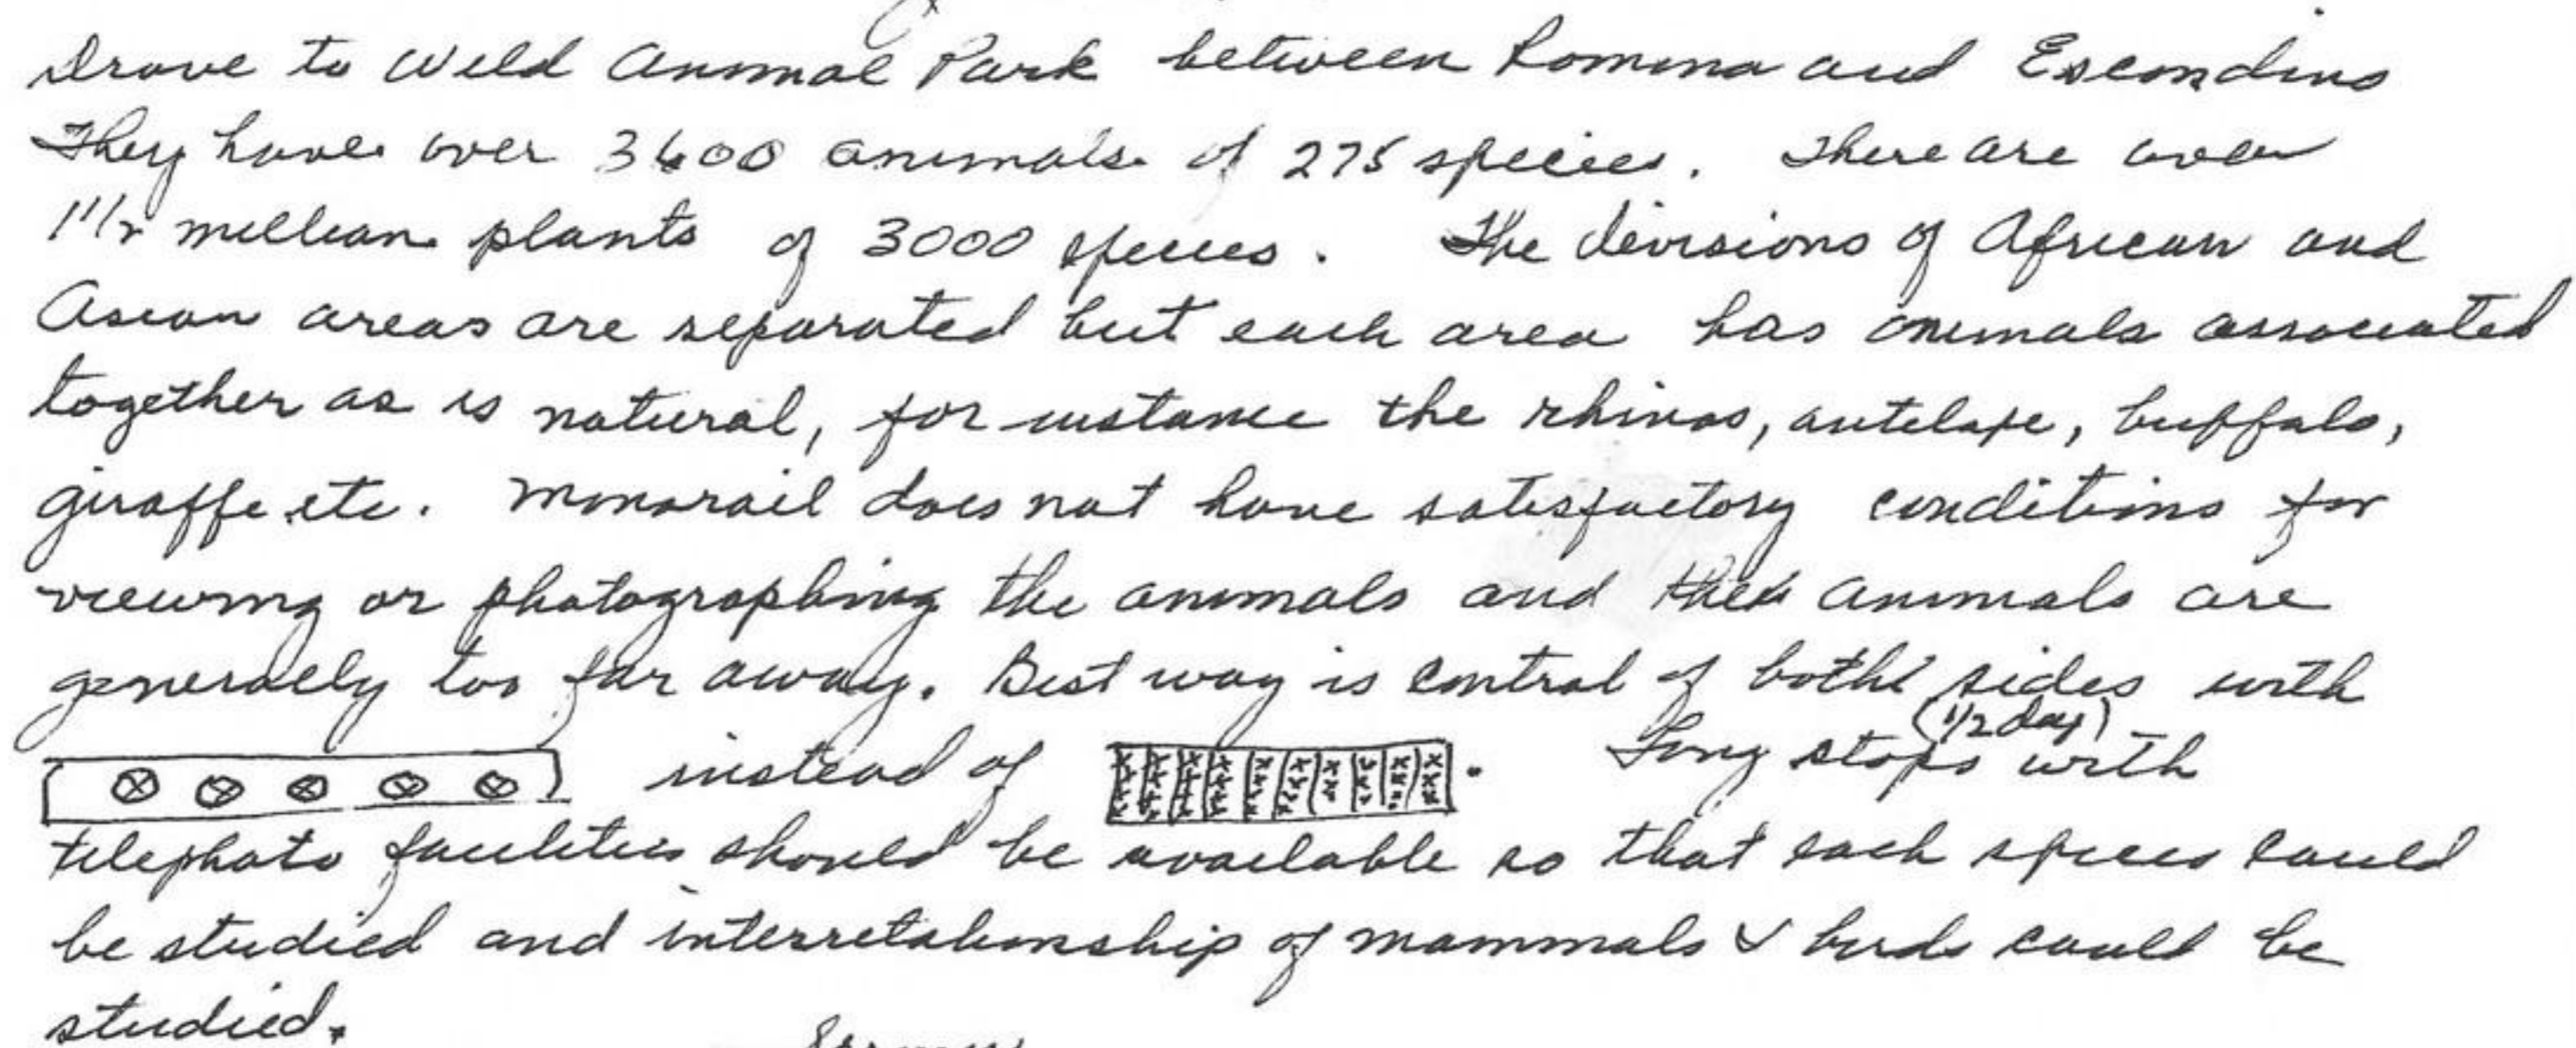 Drove to Wild Animal Park between Romona and Escondino
They have over 3600 animals of 275 species. There are over
1 1/2 million plants of 3000 species. The divisions of African and
Asian areas are separated but each area has animals associated
together as is natural, for instance the rhinos, antelope, buffalo,
giraffe etc. Monorail does not have satisfactory conditions for
viewing or photographing the animals and the animals are
generally too far away. Best way is control of both sides with
instead of . Long stops (1/2 day) with
telephoto facilities should be available so that each species could
be studied and interrelationship of mammals & birds could be
studied.